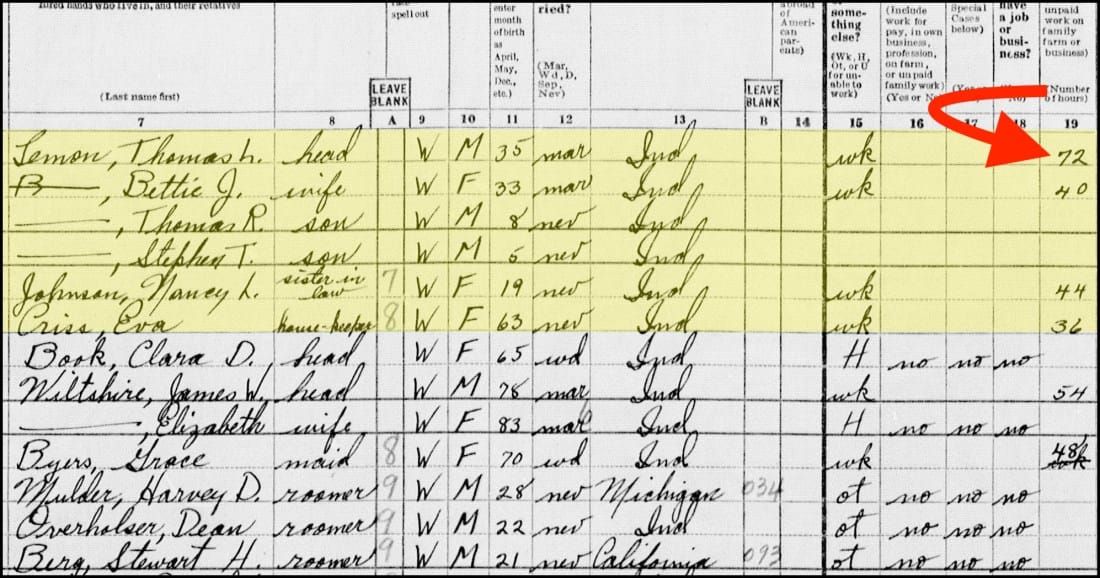 hired hands who live in, and their relatives
(Last name first)
spell out
LEAVE BLANK
enter month of birth as April, May, Dec., etc.)
ried?
(Mar, Wd, D, Sep, Nev)
LEAVE BLANK
abroad of American parents)
something else?
(Wk, H, Ot, or U for unable to work)
(Include work for pay, in own business, profession, on farm, or unpaid family work)
(Yes or No)
Special Cases below)
have a job or business?
unpaid work on family farm or business)
(Number of hours)
7 8 A 9 10 11 12 13 B 14 15 16 17 18 19
Lemon, Thomas L. head W M 35 mar Ind wk 72
B——, Bettie J. wife W F 33 mar Ind wk 40
——, Thomas R. son W M 8 nev Ind
——, Stephen T. son W M 5 nev Ind
Johnson, Nancy L. sister in law 7 W F 19 nev Ind wk 44
Criss, Eva house-keeper 8 W F 63 nev Ind wk 36
Book, Clara D. head W F 65 wd Ind H no no no
Wiltshire, James W. head W M 78 mar Ind wk 54
——, Elizabeth wife W F 83 mar Ind H no no no
Byers, Grace maid 8 W F 70 wd Ind wk 48
Mulder, Harvey D. roomer 9 W M 28 nev Michigan 034 ot no no no
Overholser, Dean roomer 9 W M 22 nev Ind ot no no no
Berg, Stewart H. roomer 9 W M 21 nev California 093 ot no no no